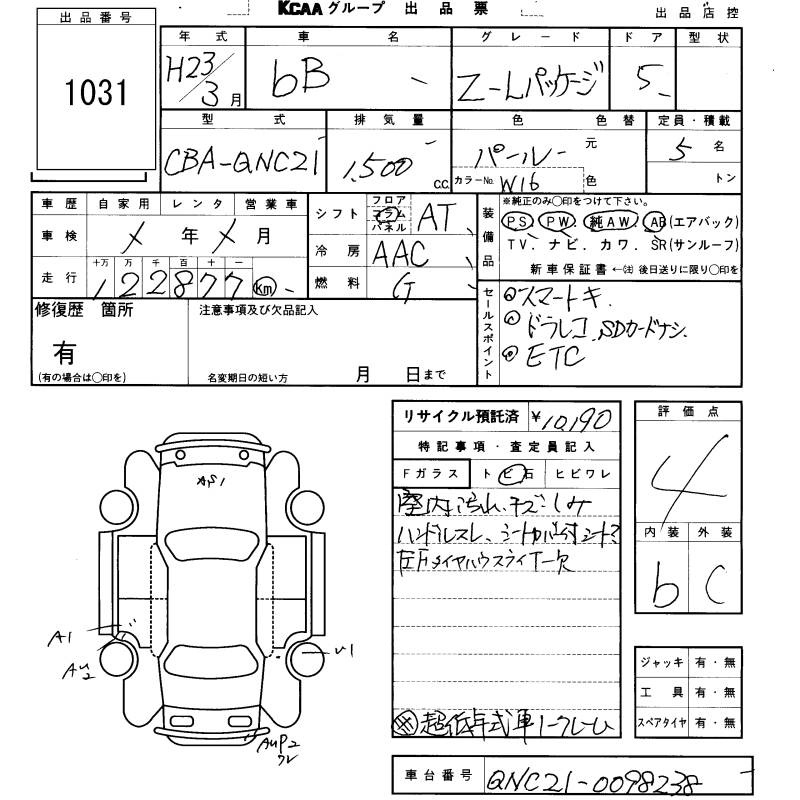 KCAAグループ 出品票
出品店控
出品番号
1031
年式
H23/3月
車名
bB
グレード
Z-Lパッケージ
ドア
5
形状
型式
CBA-QNC21
排気量
1,500 C.C.
色
パール 元色
色替
カラーNo. W16
定員・積載
5 名
トン
車歴 自家用 レンタ 営業車
車検 メ年メ月
走行 十万 万 千 百 十 一
122877 Km
シフト フロア コラム パネル AT
冷房 AAC
燃料 G
装備品
※純正のみ○印をつけて下さい。
PS. PW. 純AW. AB(エアバック)
TV. ナビ. カワ. SR(サンルーフ)
新車保証書 ←㊟ 後日送りに限り○印を
修復歴 箇所
有
(有の場合は○印を)
注意事項及び欠品記入
名変期日の短い方 月 日まで
セールスポイント
スマートキ.
ドラレコ.SDカードナシ.
ETC
リサイクル預託済 ¥10,190
特記事項・査定員記入
Fガラス トビ石 ヒビワレ
室内汚れ、キズ、しみ
ハンドルスレ、
左Fタイヤハウスライナー欠
※超低年式車 ノークレーム
評価点
4
内装 外装
b C
ジャッキ 有・無
工具 有・無
スペアタイヤ 有・無
A1
AU2
U1
車台番号 QNC21-0098238